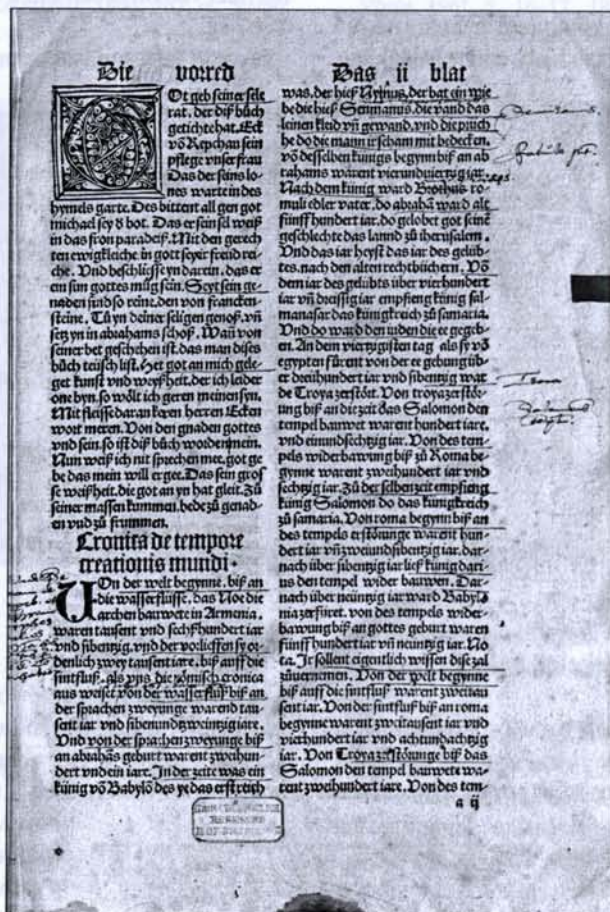 Die vorred
Ot geb seiner sele
rat. der diß bůch
getichtet hat. Eck
võ Repchau sein
pflege vnser frau
Das der seins lo-
nes warte in des
hymels garte. Des bittent all gen got
michael sey d bot. Das er sein sel weiß
in das fron paradeiß. Mit den gerech
ten ewigkliche in gott seyner freud rei-
che. Vnd beschliesse yn darein. das er
ein sun gottes můg sein. Seyt sein ge-
naden sind so reine. den von francken-
steine. Tů yn deiner seligen genoß. vñ
setz yn in abrahams schoß. Wañ von
seiner bet geschehen ist. das man dises
bůch teüsch list. Het got an mich gele-
get kunst vnd weyßheit. der ich leider
one byn. so wölt ich geren meinen syn.
Mit fleisse daran keren herren Ecken
wort meren. Von den gnaden gottes
vnd sein. so ist diß bůch worden mein.
Nun weiß ich nit sprechen mee. got ge
be das mein will ergee. Das sein gros
se weißheit. die got an yn hat gleit. Zů
seiner massen kummen. bede zů genad-
en vnd zů frummen.
Cronica de tempore
creationis mundi.
VOn der welt begynne. biß an
die wasserflüsse. das Noe die
archen bauwete in Armenia.
waren tausent vnd sechßhundert iar
vnd sibentzig. vnd der vorlieffen sy or-
denlich zwey tausent iare. biß auff die
sintfluß. als vns die römisch cronica
aus weiset von der wasserfluß biß an
der sprachen zweyunge warend tau-
sent iar vnd sibenundtzweintzig iare.
Vnd von der sprachen zweyunge biß
an abrahãs geburt warent zweihun-
dert vnd ein iare. In der zeite was ein
künig võ Babylõ des ye das erst reich
Das ii blat
was. der hieß Nynus. der hat ein wie
be die hieß Semiramus. die vand das
leinen kleid vñ gewand. vnd die pruch
he do die mann ir scham mit bedecken.
võ desselben künigs begynn biß an ab
rahams warent vierundviertzig iar.
Nach dem künig ward Brothus ro-
muli edler vater. do abrahã ward alt
fünff hundert iar. do gelobet got seinẽ
geschlechte das lannd zů iherusalem.
Vnd das iar heyst das iar des gelüb-
tes. nach den alten rechtbüchern. Võ
dem iar des gelübts über vierhundert
iar vñ dreissig iar empfieng künig sal-
manasar das künigkreich zů samaria.
Vnd do ward den iuden die ee gegeb
en. An dem viertzigisten tag als sy võ
egypten fůrent von der ee gebung üb-
er dreihundert iar vnd sibentzig war
de Troya zerstört. Von troya zerstör-
ung biß an die zeit das Salomon den
tempel bauwet warent hundert iare.
vnd einundsechtzig iar. Von des tem-
pels widerbawung biß zů Roma be-
gynne warent zweihundert iar vnd
sechtzig iar. Zů der selben zeit empfieng
künig Salomon do das künigkreich
zů samaria. Von roma begynn biß an
des tempels erstörunge warent hun-
dert iar vñ zweiundsibentzig iar. dar-
nach über sibentzig iar ließ künig dari-
us den tempel wider bauwen. Dar-
nach über neüntzig iar ward Babylo
nia zerfüret. von des tempels wider-
bawung biß an gottes geburt waren
fünff hundert iar vñ neüntzig iar. No
ta. Ir sollent eigentlich wissen dise zal
zůuernemen. Von der welt begynne
biß auff die sintfluß warent zweitau
sent iar. Von der sintfluß biß an roma
begynne warent zwei tausent iar vnd
vierhundert iar vnd achtundachtzig
iar. Von Troya zerstörunge biß das
Salomon den tempel bauwete wa-
rent zweihundert iare. Von des tem-
a ij